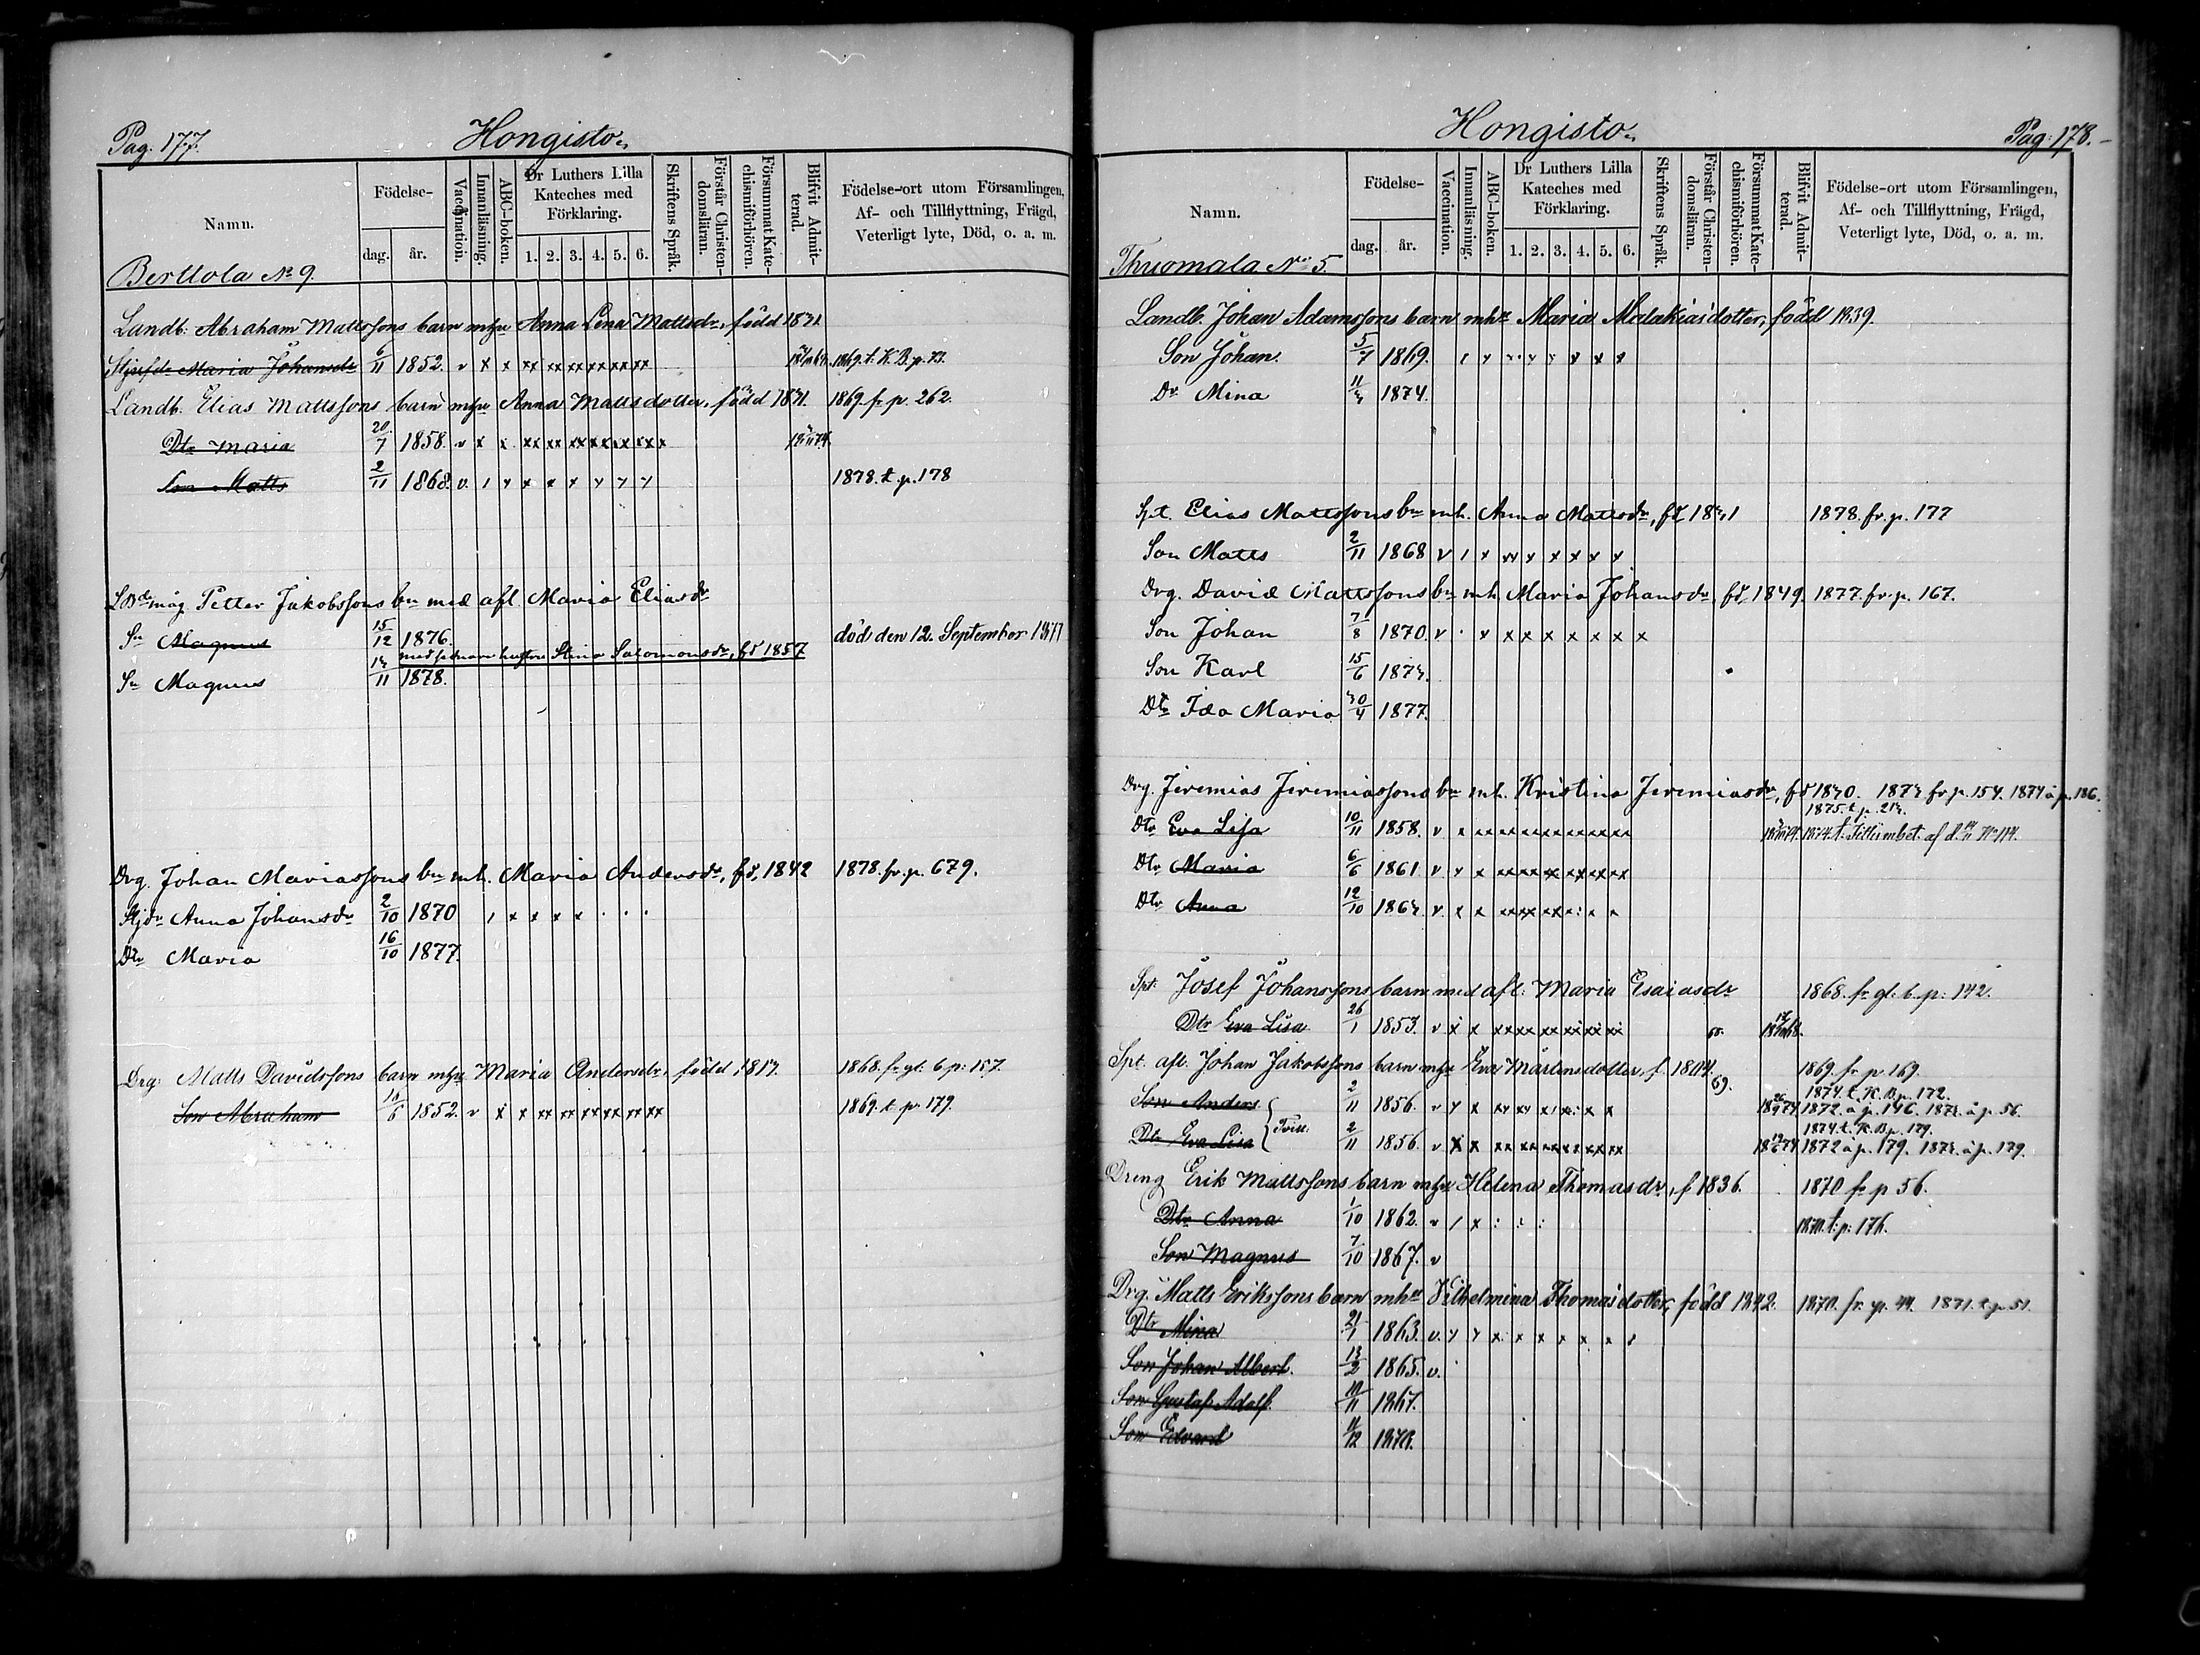 Pag. 177.
Hongisto.
Namn.
Födelse-
dag. år.
Vaccination.
Innanläsning.
ABC-boken.
Dr Luthers Lilla Kateches med Förklaring.
1. 2. 3. 4. 5. 6.
Skriftens Språk.
Förstår Christendomsläran.
Försummat Katechismiförhören.
Blifvit Admitterad.
Födelse-ort utom Församlingen,
Af- och Tillflyttning, Frägd,
Veterligt lyte, Död, o. a. m.
Berttola No 9.
Landb. Abraham Mattssons barn mhu Anna Lena Mattsdr, född 1831.
Stjufdr Maria Johansdr 6/11 1852. v x x xx xx xx xx xx xx 1869. t. K. B. p.
Landb. Elias Mattssons barn mhu Anna Mattsdotter, född 1831. 1869. fr p. 262.
Dtr Maria 20/7 1858. v x x xx xx xx xx xx xx x
Son Matts 2/11 1868. v. 1 x x x x y y y 1878. t. p. 178
Petter Jakobssons bn med afl Maria Eliasdr
Sn Magnus 15/12 1876. död den 12. September 1877
med senare hustru Stina Salomonsdr, fd 1857
Sn Magnus 13/11 1878.
Drg. Johan Mariassons bn mh. Maria Andersdr, fd, 1842 1878. fr. p. 679.
Stjdr Anna Johansdr 2/10 1870 1 x x x x . . .
Dtr Maria 16/10 1877.
Drg: Matts Davidssons barn mhu Maria Andersdr, född 1817. 1868. fr gl: b p: 157.
Son Abraham 1852. v x x xx xx xx xx xx xx 1869. t. p. 179.
Hongisto.
Pag: 178.
Namn.
Födelse-
dag. år.
Vaccination.
Innanläsning.
ABC-boken.
Dr Luthers Lilla Kateches med Förklaring.
1. 2. 3. 4. 5. 6.
Skriftens Språk.
Förstår Christendomsläran.
Försummat Katechismiförhören.
Blifvit Admitterad.
Födelse-ort utom Församlingen,
Af- och Tillflyttning, Frägd,
Veterligt lyte, Död, o. a. m.
Thuomala No 5.
Landb. Johan Adamssons barn mhu Maria Malakiasdotter, född 1839.
Son Johan. 5/7 1869.
Dr Mina 11/3 1874.
Spt. Elias Mattssons bn mh. Anna Mattsdr, fd 1831 1878. fr. p. 177
Son Matts 2/11 1868 v 1 x xx x x x x x
Drg. David Mattssons bn mh. Maria Johansdr, fd, 1849. 1877. fr. p. 167.
Son Johan 7/8 1870. v . x x x x x x x x
Son Karl 15/6 1873.
Dtr Ida Maria 30/4 1877.
Drg. Jeremias Jeremiassons bn mh. Kristina Jeremiasdr, fd 1830. 1873 fr. p. 154. 1874 å p. 186.
1875. t. p. 213.
Dtr Eva Lisa 10/11 1858. v x xx xx xx xx xx xx 1874. t.
Dtr Maria 6/6 1861 v y x xx xx xx xx xx xx
Dtr Anna 12/10 1863. v. x x xx xx xx x: x x
Spt. Josef Johanssons barn med afl: Maria Esaiasdr 1868. fr gl: b. p: 142.
Dtr Eva Lisa 26/1 1853. v x x xx xx xx xx xx xx
Spt. afl. Johan Jakobssons barn mhu Eva Mårtensdotter, f. 1814. 69. 1869. fr p 169.
1874. t. K. B. p. 172.
Son Anders 2/11 1856. v y x xx xy x x: x x 1872. å p. 146. 1873. å p. 56.
Tvill:
1874. t. K. B. p. 179.
Dtr Eva Lisa 2/11 1856. v x x xx xx xx xx xx xx 1872 å p. 179. 1873. å p. 179.
Dreng Erik Mattssons barn mhu Helena Thomasdr, f 1836. 1870 fr p 56.
Dtr Anna 1/10 1862. v 1 x : : : 1870. t: p: 176.
Son Magnus 7/10 1867. v
Drg. Matts Erikssons barn mhu Vilhelmina Thomasdotter, född 1842. 1870. fr. p. 44. 1871. t. p. 51.
Dtr Mina 21/1 1863. v. y y x x x x x x 1
Son Johan Albert. 13/2 1865. v.
Son Gustaf Adolf. 1867.
Son Edvard 11/12 1870.